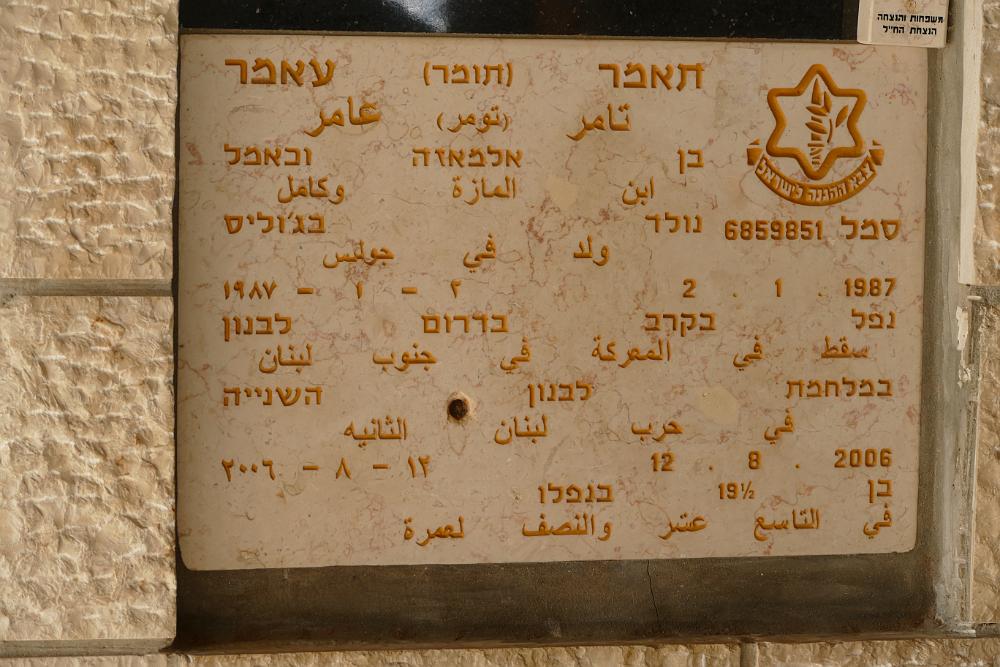 משפחות והנצחה
הנצחת החייל
תאמר (תומר) עאמר
تامر (تومر) عامر
בן אלמאזה וכאמל
ابن المازة وكامل
צבא ההגנה לישראל
סמל 6859851 נולד בג'וליס
ولد في جولس
1987 . 1 . 2
٢ - ١ - ١٩٨٧
נפל בקרב בדרום לבנון
سقط في المعركة في جنوب لبنان
במלחמת לבנון השנייה
في حرب لبنان الثانيه
2006 . 8 . 12
١٢ - ٨ - ٢٠٠٦
בן 19½ בנפלו
في التاسع عشر والنصف لعمرة